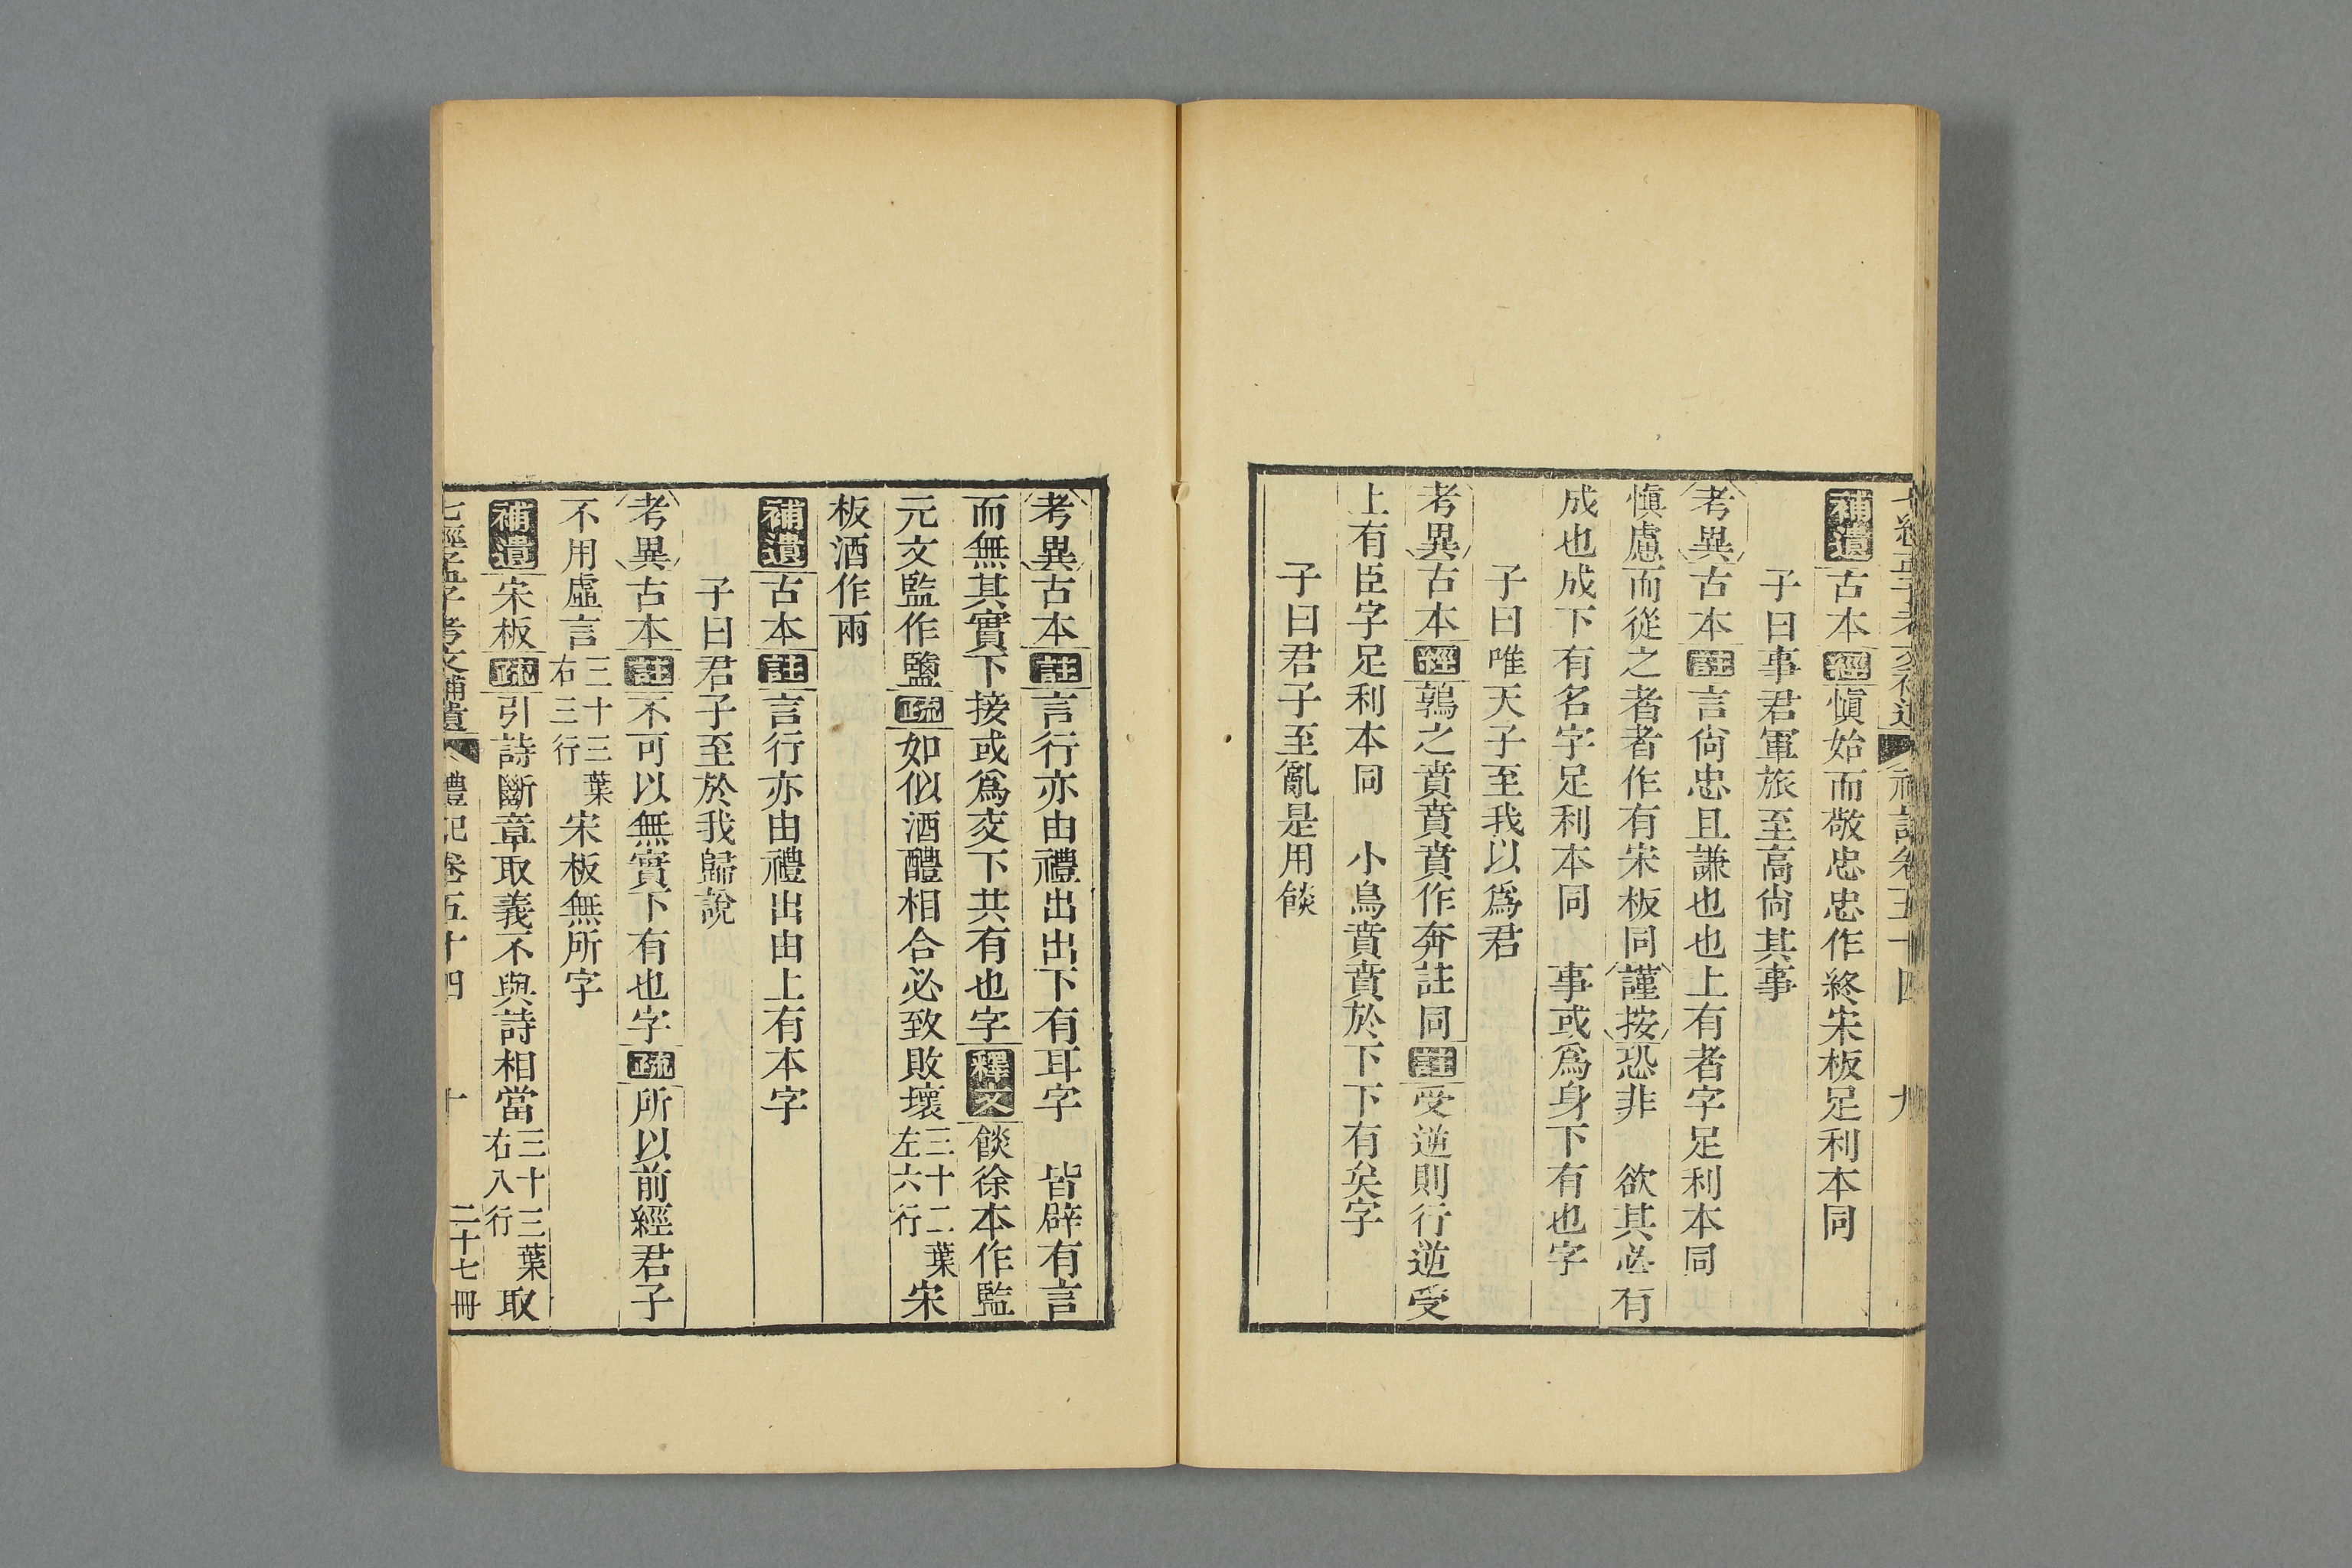 七經孟子考文補遺 禮記卷五十四 九
補遺古本經愼始而敬忠忠作終宋板足利本同
子曰事君軍旅至高尙其事
考異古本註言尙忠且謙也也上有者字足利本同
愼慮而從之者者作有宋板同謹按恐非 欲其必有
成也成下有名字足利本同 事或爲身下有也字
子曰唯天子至我以爲君
考異古本經鶉之賁賁賁作奔註同註受逆則行逆受
上有臣字足利本同 小鳥賁賁於下下有矣字
子曰君子至亂是用餤
考異古本註言行亦由禮出出下有耳字 皆辟有言
而無其實下接或爲交下共有也字釋文餤徐本作監
元文監作鹽疏如似酒醴相合必致敗壞三十二葉左六行宋
板酒作兩
補遺古本註言行亦由禮出由上有本字
子曰君子至於我歸說
考異古本註不可以無實下有也字疏所以前經君子
不用虛言三十三葉右三行宋板無所字
補遺宋板疏引詩斷章取義不與詩相當三十三葉右八行取
七經孟子考文補遺 禮記卷五十四 十 二十七冊